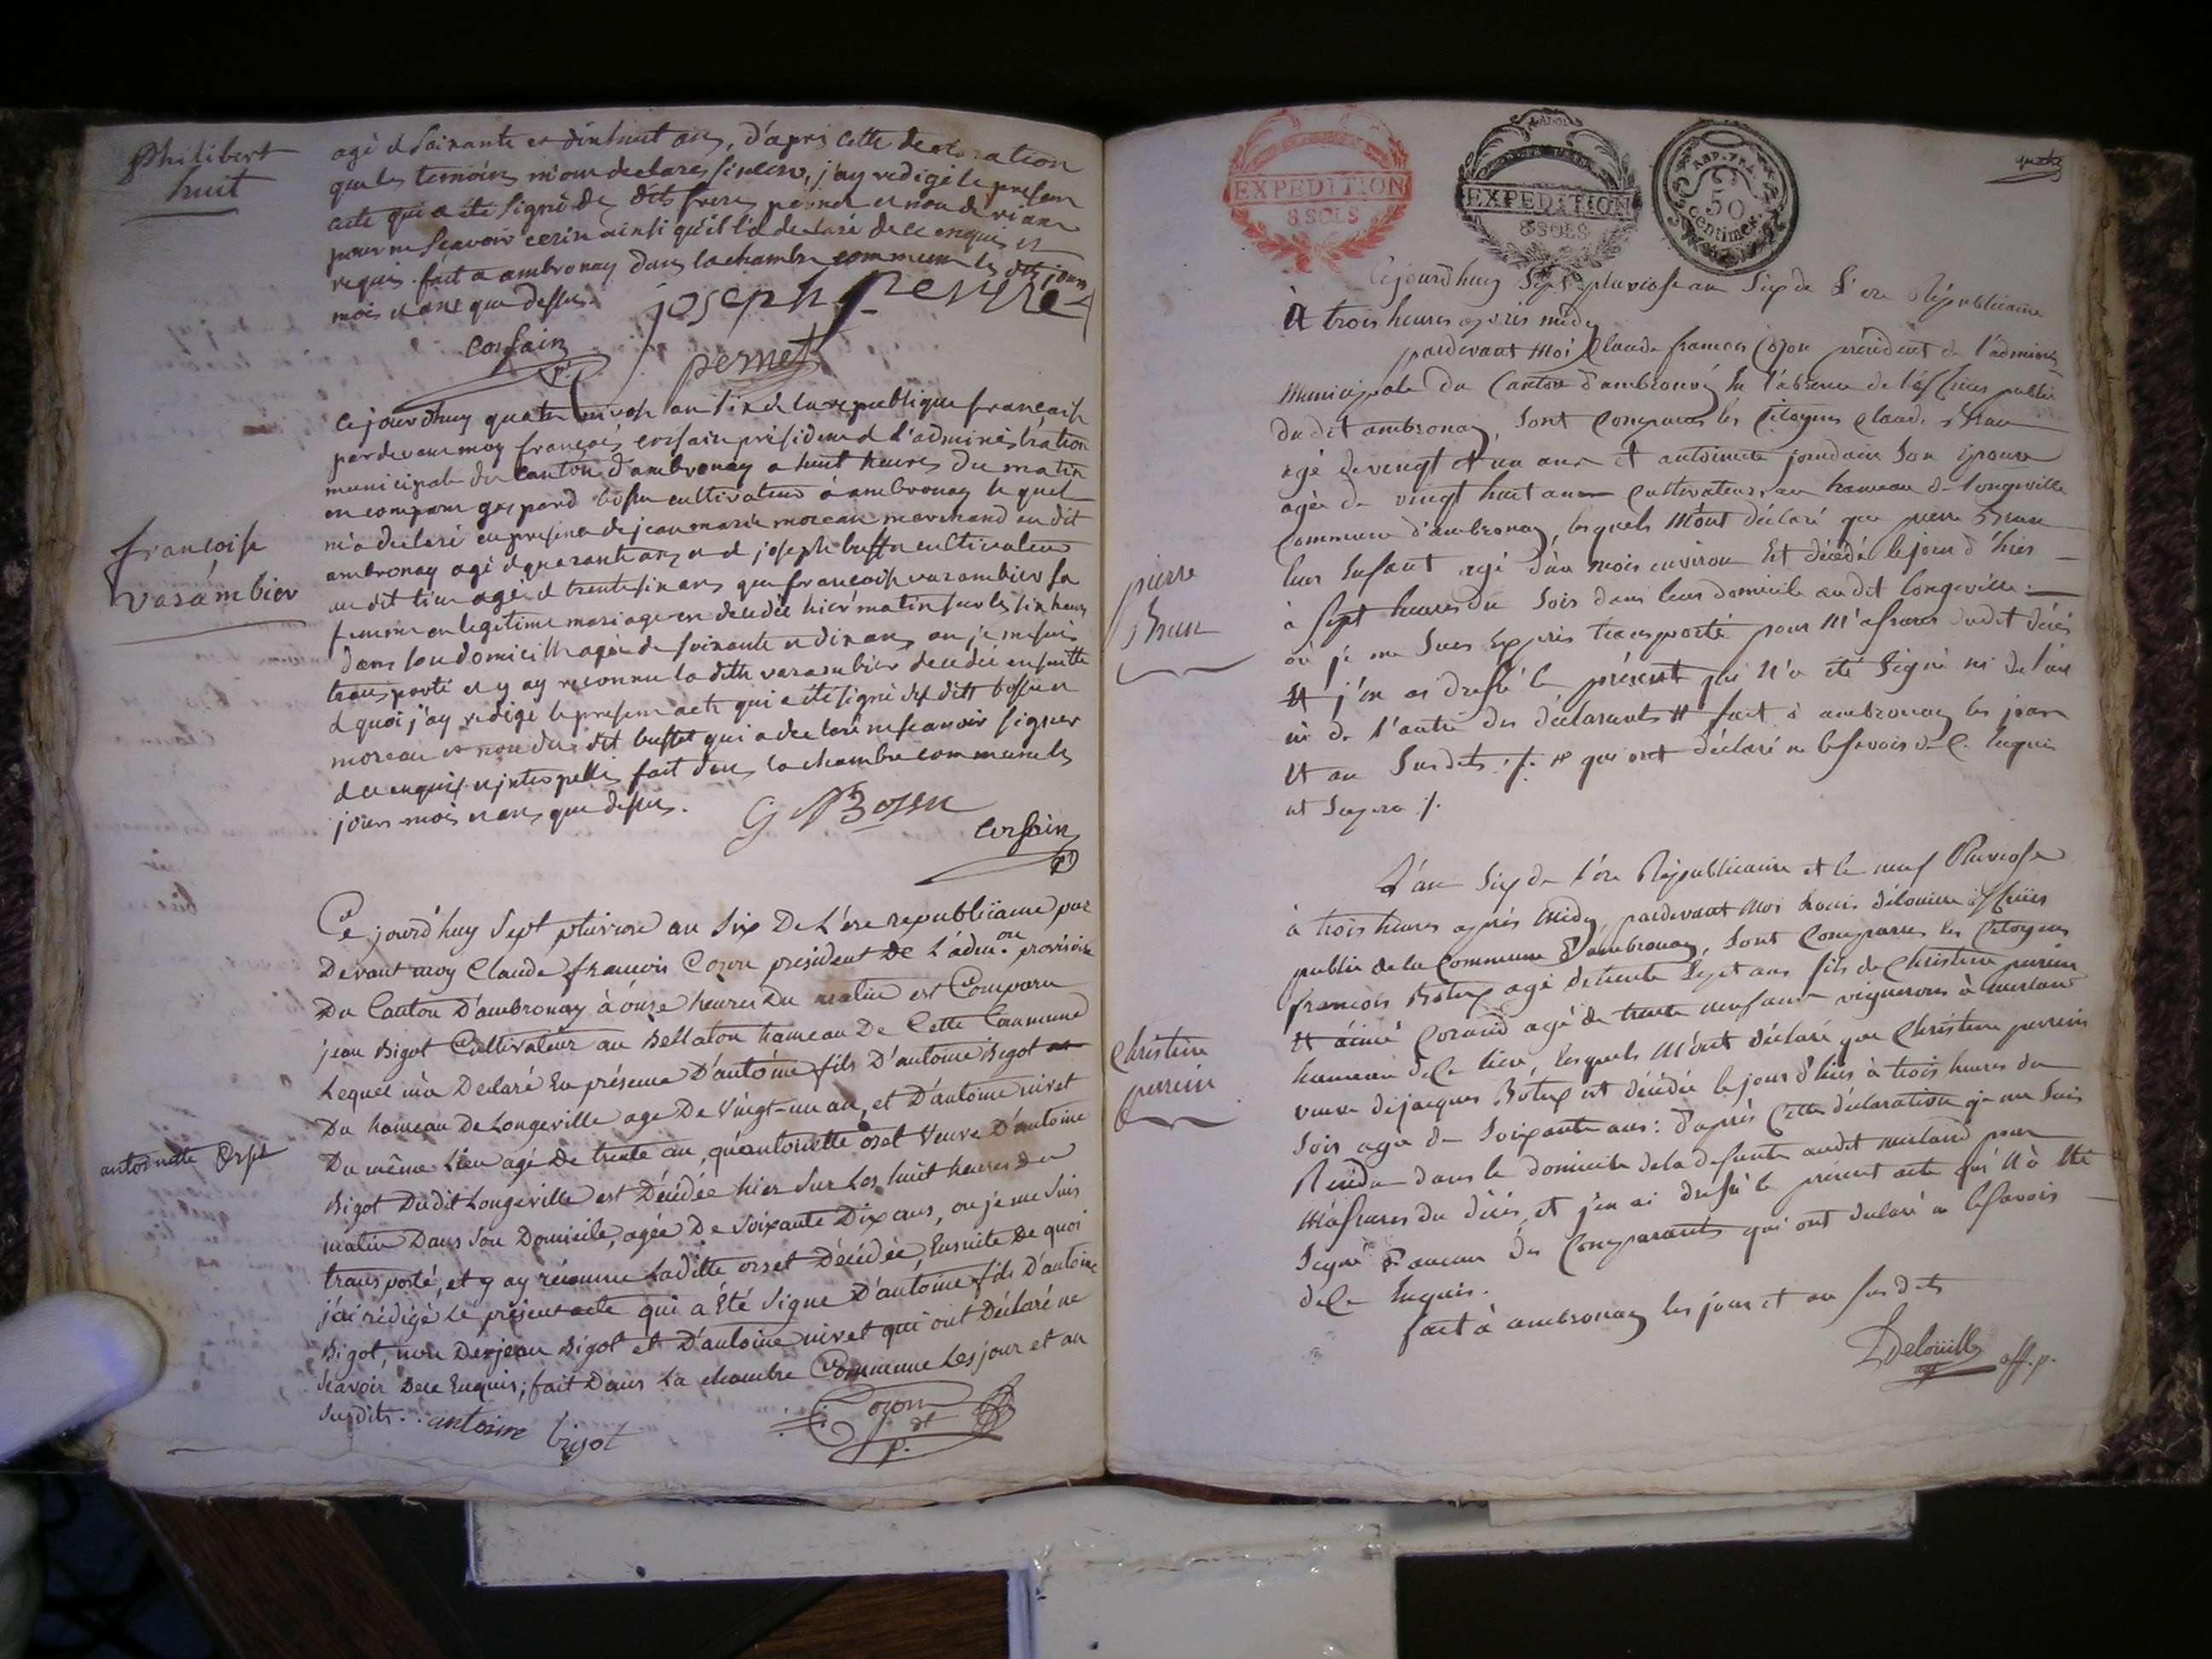 Philibert
huit
agé d Soixante et dixhuit ans, d'apres cette declaration
que les temoins m'ont declarés sincere, j'ay redigé le present
acte qui a été signé des dits freres pernet et non de
pour ne scavoir ecrire ainsi qu'il l'a declaré de ce enquis et
requis. fait a ambronay dans la chambre commune les dits jours
mois et ans que dessus.
joseph
corsain
pernet
françoise
varámbier
ce jourdhuy quatre nivose an six de la republique francaise
pardevant moy françois corsain president d l'administration
municipale du canton d'ambronay a huit heures du matin
en comparu gaspard bossu cultivateur à ambronay le quel
m'a declaré en presence de jean marie moreau marchand au dit
ambronay agé d quarante ans et d joseph cultivateur
au dit lieu agé d trente six ans que françoise varambier sa
femme en legitime mariage en decedée hier matin sur les six heures
dans son domicille agée de soixante et dix ans ou je me suis
transporté et y ay reconnu la ditte varambier decedée ensuitte
d quoi j'ay redigé le present acte qui a été signé des dits bossu et
moreau et non du dit qui a declaré ne scavoir signer
d ce enquis et interpellé fait dans la chambre commune les
jours mois et ans que dessus.
G Bossu
corsain
antoinette Orset
Ce jourd'huy Sept pluviose an Six De L'ere republicaine par
Devant moy Claude francois Cozon president De L'adm.on provisoire
Du Canton D'ambronay à onze heures Du matin est Comparu
jean Bigot Cultivateur au Bellaton hameau De Cette Commune
Lequel m'a Declaré En présence D'antoine fils D'antoine Bigot
Du hameau De Longeville age De Vingt-un an, et D'antoine nivet
Du même Lieu agé De trente an, qu'antoinette orset Veuve D'antoine
Bigot Dudit Longeville est Décédée hier Sur Les huit heures Du
matin Dans Son Domicile, agée De Soixante Dix ans, ou je me Suis
transporté, et y ay reconnu Laditte orset Décédée, Ensuite De quoi
j'ai rédigé Le présent acte qui a Eté Signé D'antoine fils D'antoine
Bigot, non De jean Bigot et D'antoine nivet qui ont Déclaré ne
Scavoir De ce Enquis; fait Dans La chambre Commune Les jour et an
Susdits.
antoine bigot
Cozon
p. dt
EXPEDITION
8 SOLS
EXPEDITION
8 SOLS
REP. FRA.
50
centimes
Cejourd'huy Sept pluviose an Six de L'ere Républicaine
À trois heures après midy
pardevant Moi Claude francois Cozon président de l'admin.
Municipale du Canton d'ambronay En l'absence de l'officier public
du dit ambronay, Sont Comparus les Citoyens Claude Brun
agé de vingt et un ans et antoinette jourdain Son épouse
agée de vingt huit ans Cultivateurs au hameau de longeville
Commune d'ambronay, lesquels M'ont déclaré que pierre Brun
leur Enfant agé d'un mois environ Est décédé le jour d'hier
à Sept heures du Soir dans leur domicile au dit longeville
où je me Suis Exprès transporté pour M'assurer dudit décès
Et j'en ai dressé le présent qui N'a été Signé ni de l'un
ni de l'autre des déclarants # fait à ambronay les jour
Et an Susdits ./. # qui ont déclaré ne le Savoir de Ce Enquis
ut Supra ./.
pierre
Brun
L'an Six de l'ere Républicaine et le neuf Pluviose
à trois heures après Midy, pardevant Moi Louis Délouille officier
public de la Commune D'ambronay, Sont Comparus les Citoyens
francois agé de trente Sept ans fils de Christine perrin
Et aimé agé de trente neuf ans vignerons à merland
hameau de Ce lieu, lesquels M'ont déclaré que Christine perrin
veuve de jacques est décédée le jour d'hier à trois heures du
Soir agée de Soixante ans: d'après Cette déclaration je me Suis
Rendu dans le domicile de la defunte audit merland pour
M'assurer du décès, et j'en ai dressé le présent acte qui N'a Eté
Signé D'aucun des Comparants qui ont declaré ne le Savoir
de Ce Enquis.
fait à ambronay les jour et an Susdits
Christine
perrin
Delouille off. p.